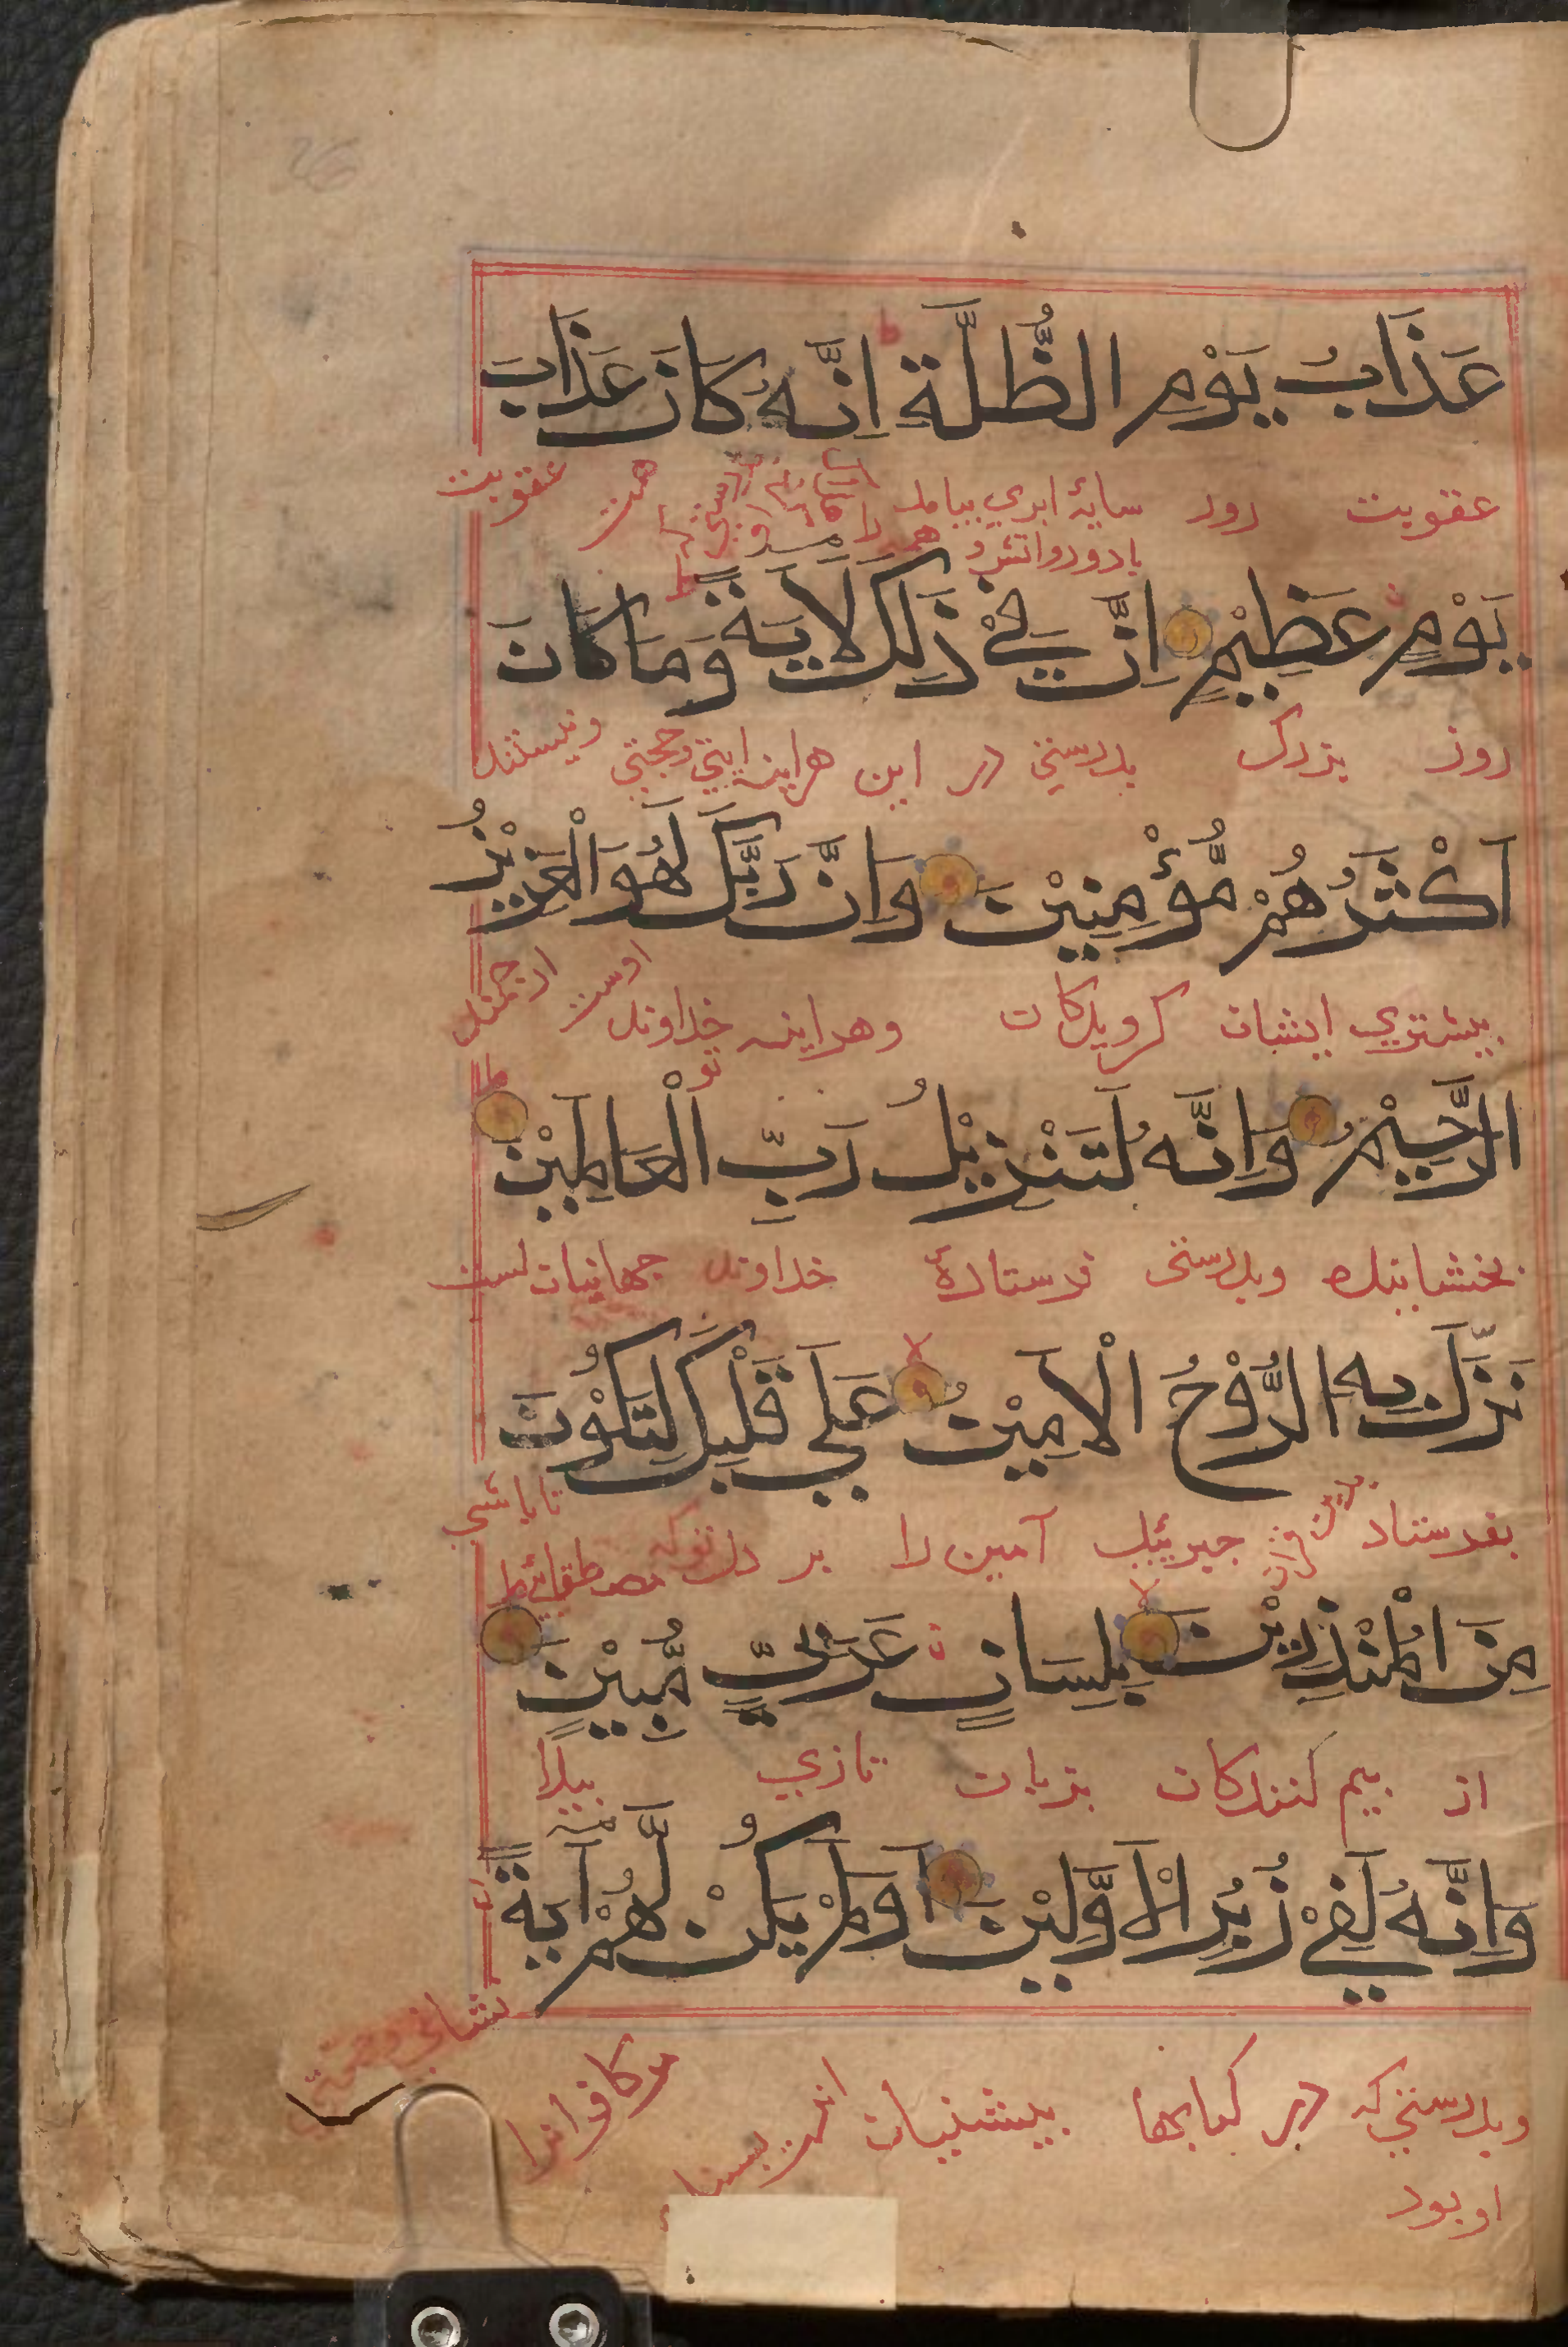 عَذَابُ يَوْمِ الظُّلَّةِ اِنَّهُ كَانَ عَذَابَ
عقوبت روز سایهٔ ابری بیامد عقوبت
یَوْمٍ عَظِیْمٍ اِنَّ فِیْ ذَلِكَ لَاٰیَةً وَمَا كَانَ
روز بزرک بدرستی در این هراینه ایتی وحجتی ونیستند
اَكْثَرُهُمْ مُّؤْمِنِیْنَ وَاِنَّ رَبَّكَ لَهُوَ الْعَزِیْزُ
بیشتری ایشان کرویدکان وهراینه خداوند تو اوست ارجمند
الرَّحِیْمُ وَاِنَّهُ لَتَنْزِیْلُ رَبِّ الْعَالَمِیْنَ
بخشاینده وبدرستی فرستادهٔ خداوند جهانیان است
نَزَّلَ بِهِ الرُّوْحُ الْاَمِیْنُ عَلَی قَلْبِكَ لِتَكُوْنَ
بفرستاد جبرئیل آمین را بر دل تو که تا باشی
مِنَ الْمُنْذِرِیْنَ بِلِسَانٍ عَرَبِیٍّ مُّبِیْنٍ
از بیم کنندکان بزبان تازی پیدا
وَاِنَّهُ لَفِیْ زُبُرِ الْاَوَّلِیْنَ اَوَلَمْ یَكُنْ لَّهُمْ اٰیَةً
وبدرستی که در کتابها پیشینیان مر کافرانرا نشانی
او بود